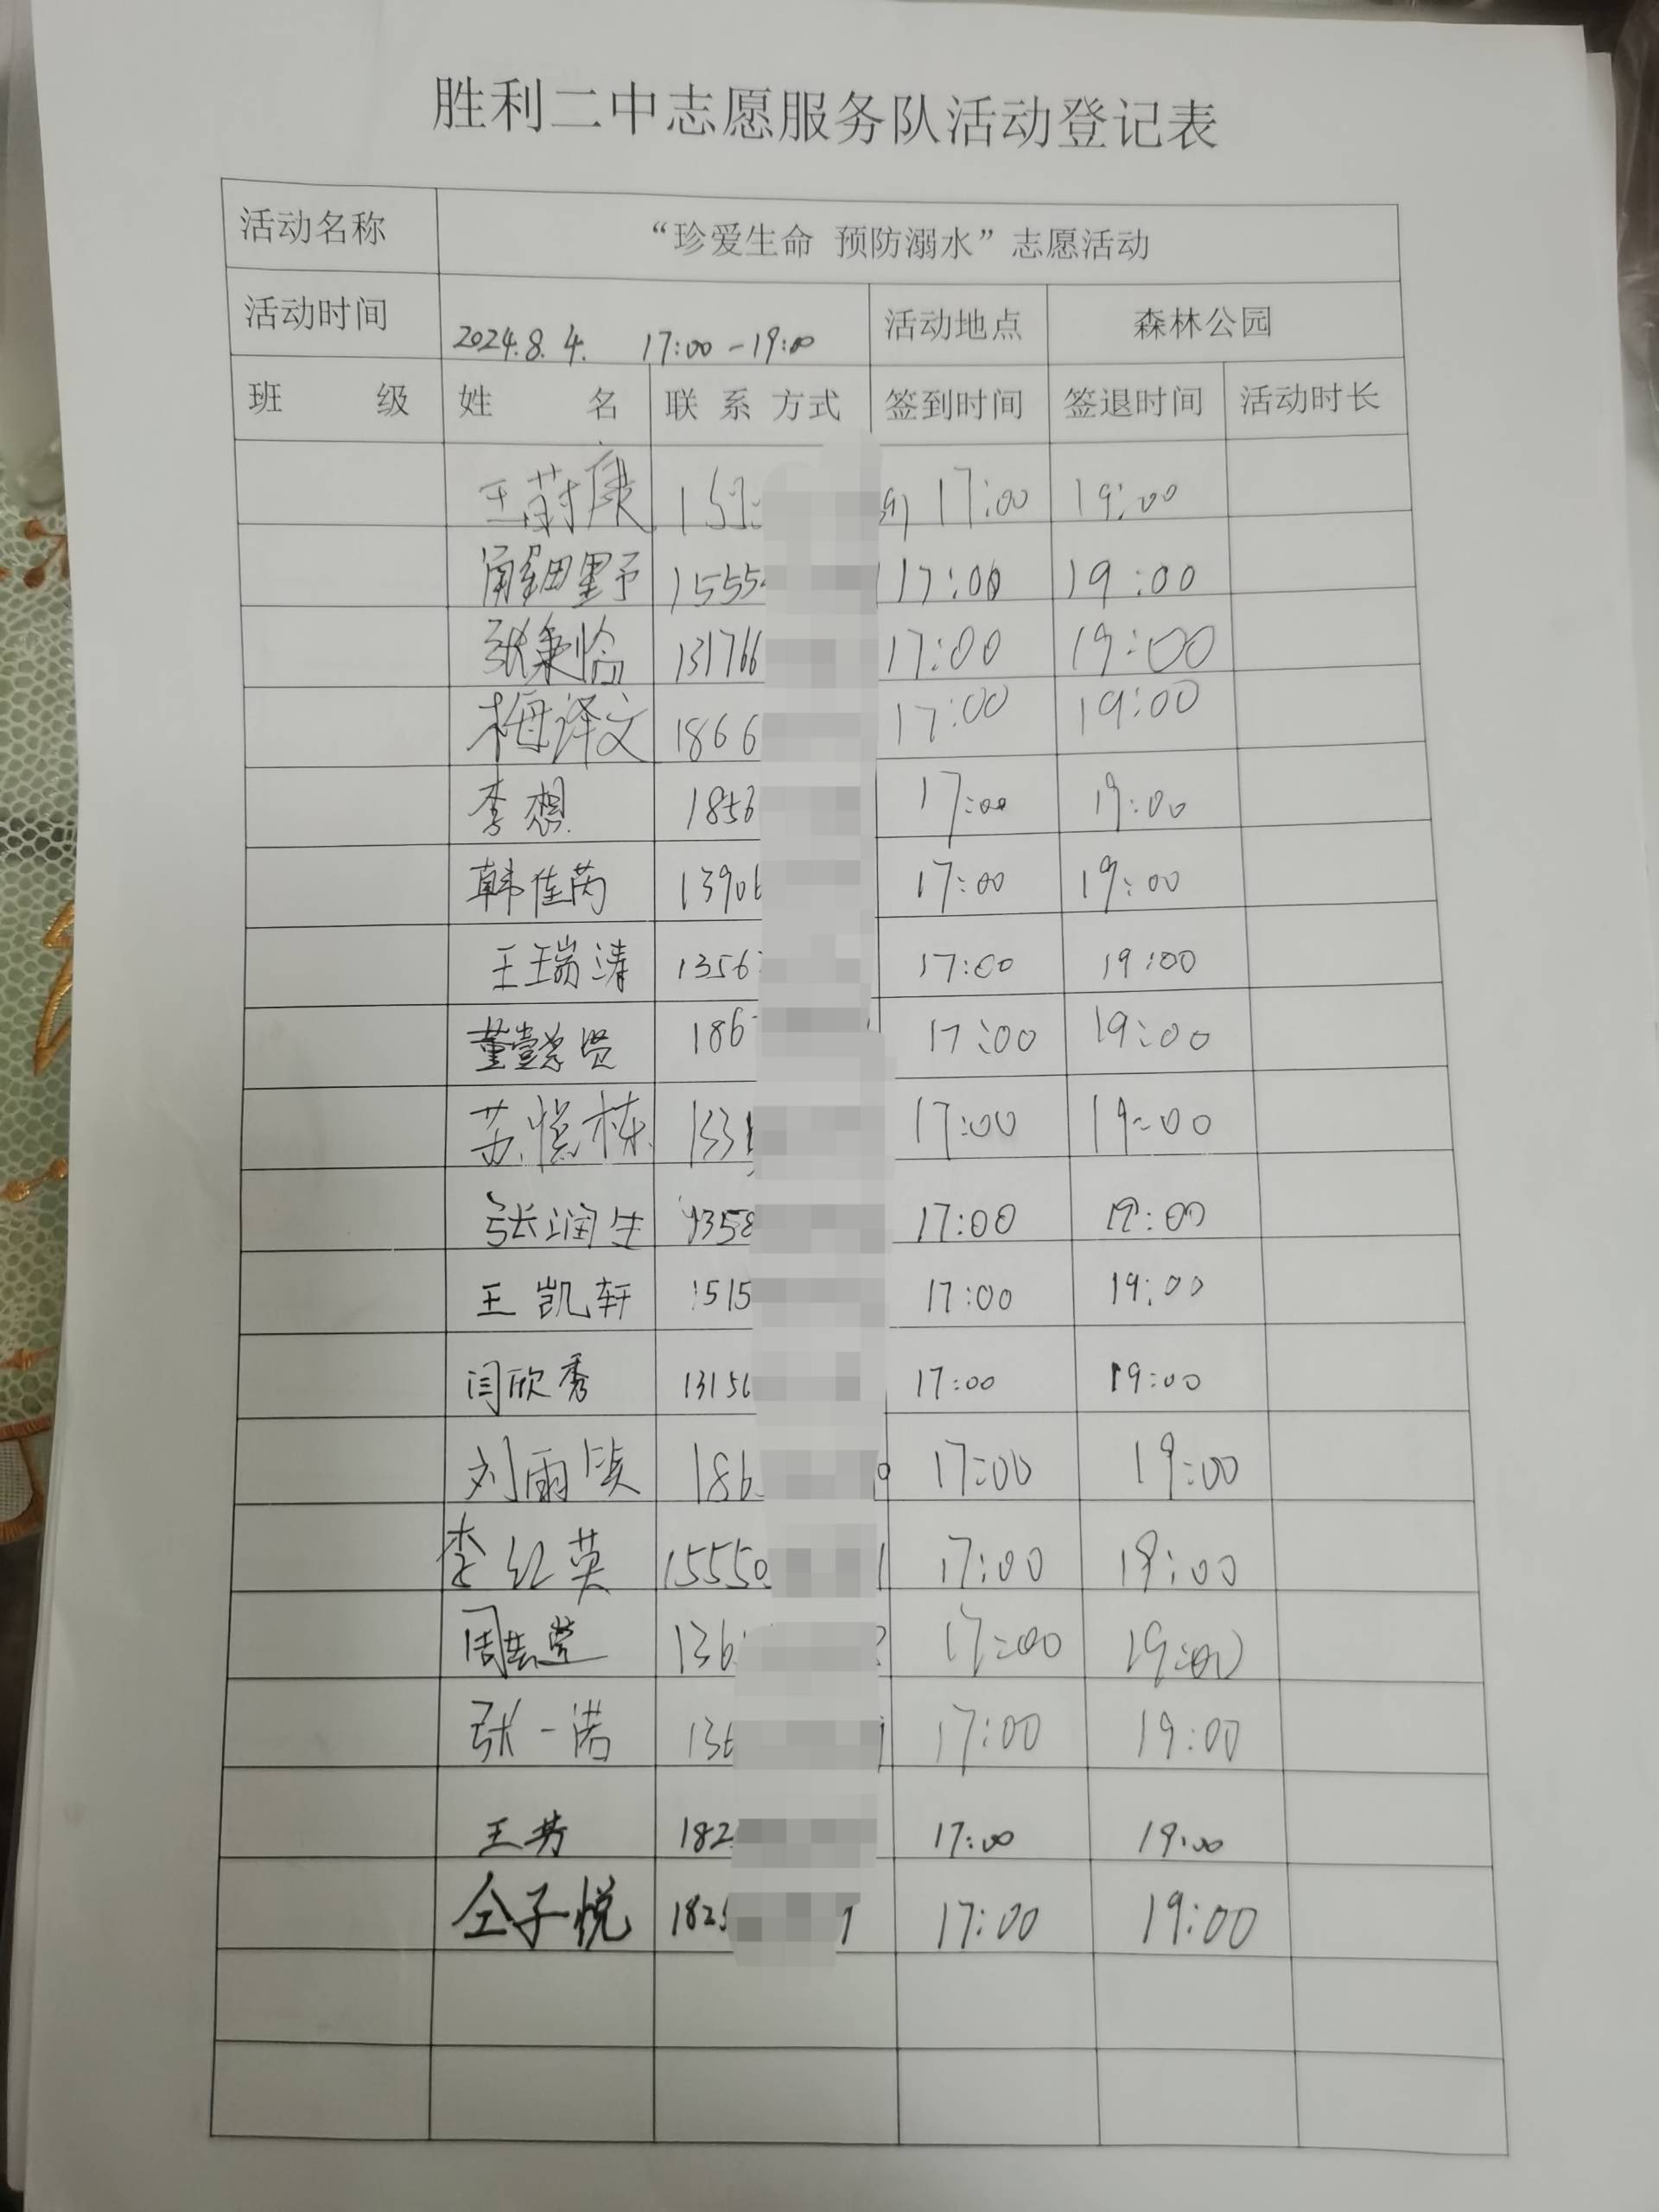 胜利二中志愿服务队活动登记表
活动名称 “珍爱生命 预防溺水”志愿活动
活动时间 2024.8.4. 17:00-19:00 活动地点 森林公园
班 级 姓 名 联系方式 签到时间 签退时间 活动时长
王蔚康 17:00 19:00
1555 17:00 19:00
张秉怡 131766 17:00 19:00
梅译文 1866 17:00 19:00
李想 1856 17:00 19:00
韩佳芮 1390 17:00 19:00
王瑞清 1356 17:00 19:00
董 贤 186 17:00 19:00
苏 栋 133 17:00 19:00
张润生 1358 17:00 19:00
王凯轩 1515 17:00 19:00
闫欣秀 1315 17:00 19:00
刘雨 186 17:00 19:00
李红英 15550 1 17:00 19:00
周 136 17:00 19:00
张一诺 136 17:00 19:00
王芳 182 17:00 19:00
仝子悦 182 17:00 19:00